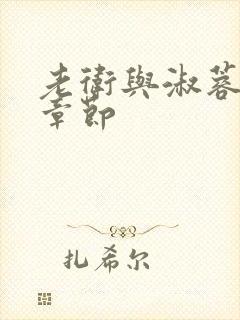 老衛與淑蓉
章節
扎希尔